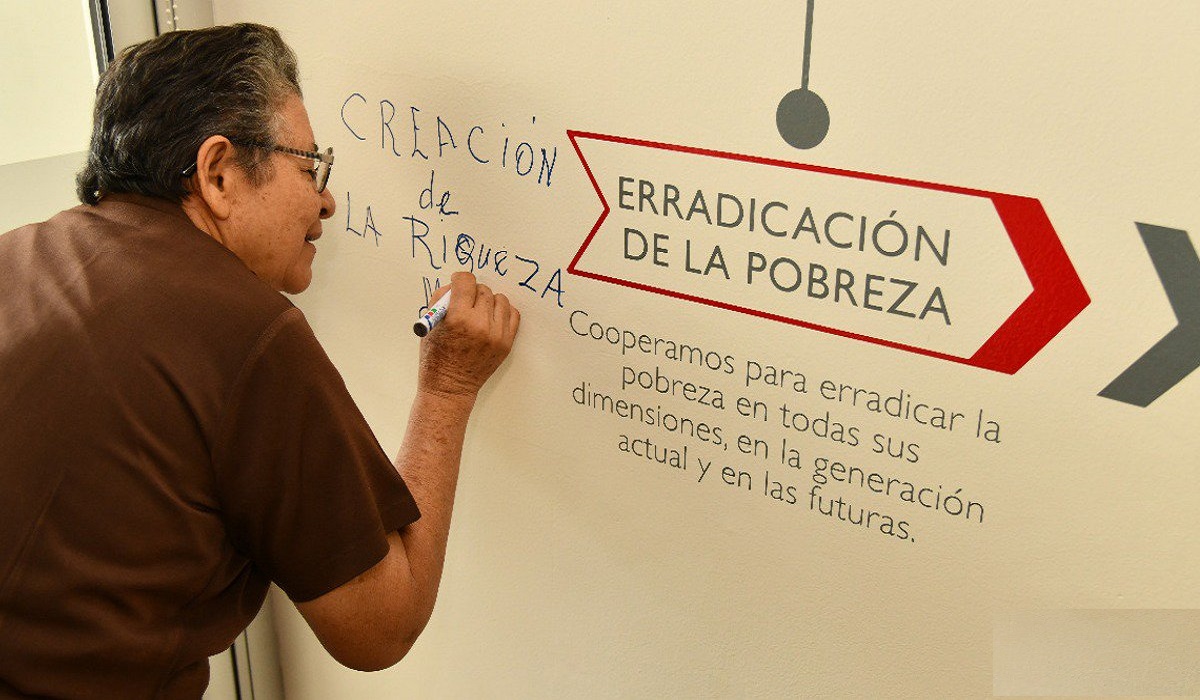 CREACIÓN
de
LA RIQUEZA
ERRADICACIÓN
DE LA POBREZA
Cooperamos para erradicar la
pobreza en todas sus
dimensiones, en la generación
actual y en las futuras.